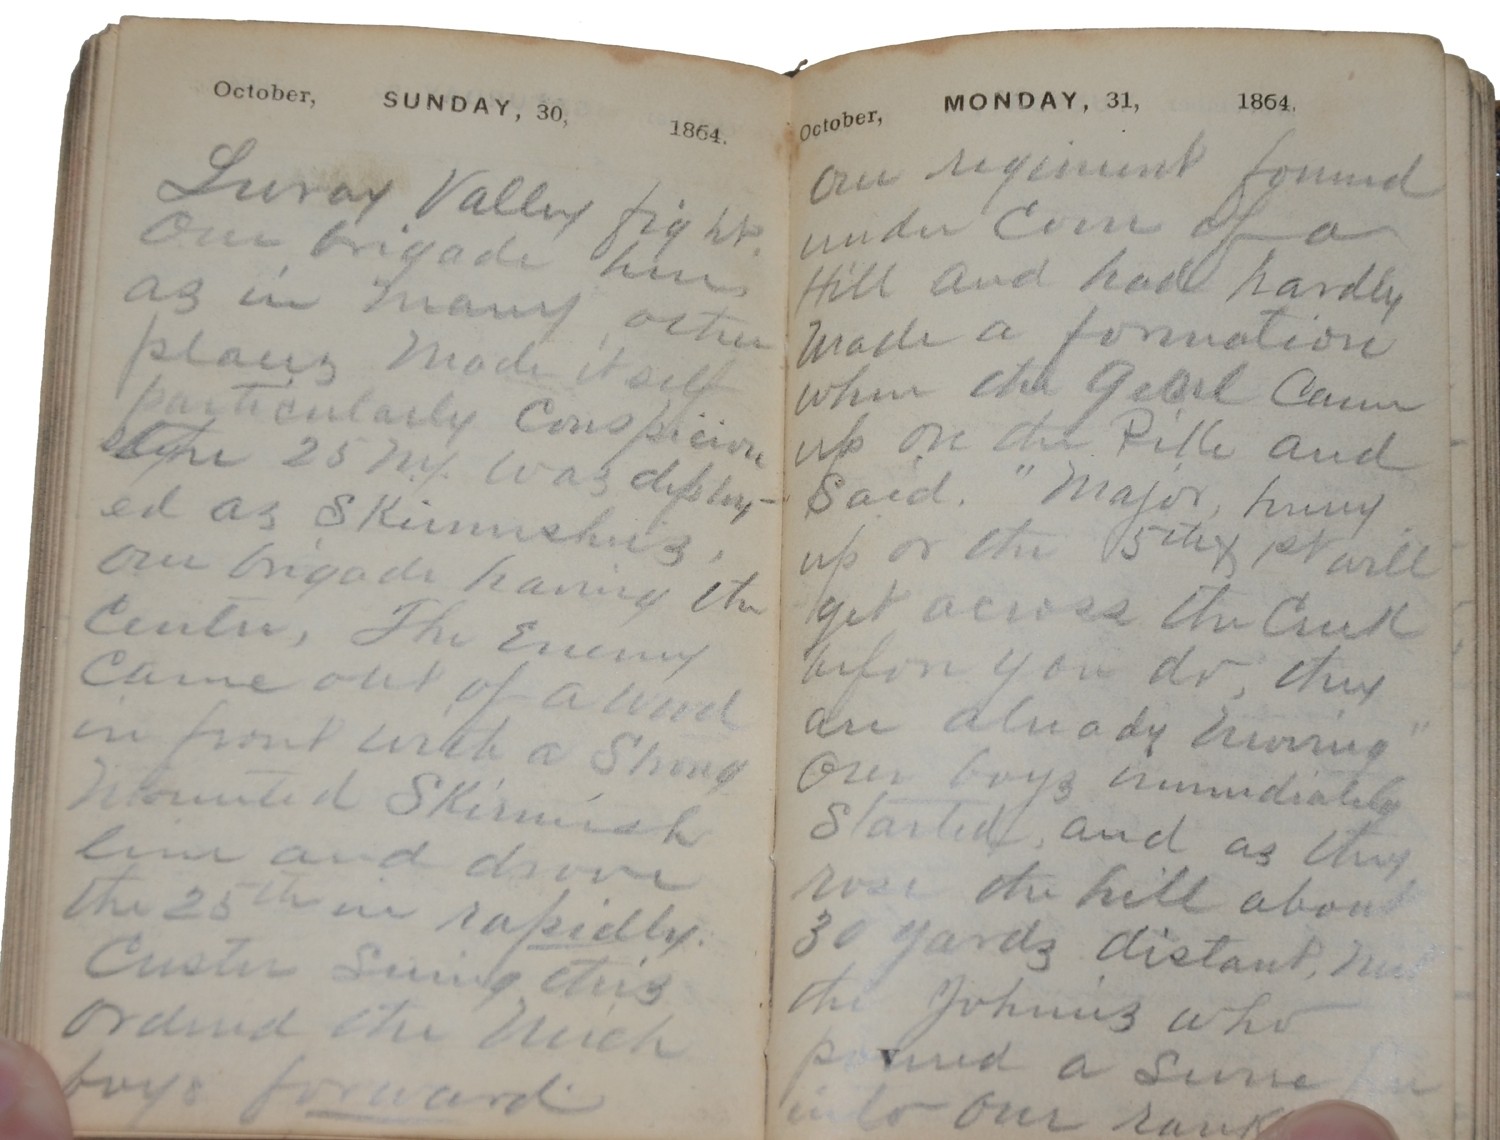 October, SUNDAY, 30, 1864.
Luray Valley fight.
Our brigade here
as in many other
places made itself
particularly conspicious
the 25 NY. was deploy-
ed as Skirmishers,
our brigade having the
Center, The Enemy
came out of a wood
in front with a Strong
Mounted Skirmish
line and drove
the 25th in rapidly.
Custer Seeing this
ordered the Mich
boys forward
October, MONDAY, 31, 1864.
Our regiment formed
under Cover of a
Hill and had hardly
made a formation
when the Genl Came
up on the Pike and
Said. "Major, hurry
up or the 5th & 1st will
get across the Creek
before you do, they
are already moving"
Our boys immediately
Started, and as they
rose the hill about
30 yards distant, met
the Johnies who
poured a Severe fire
into our ranks